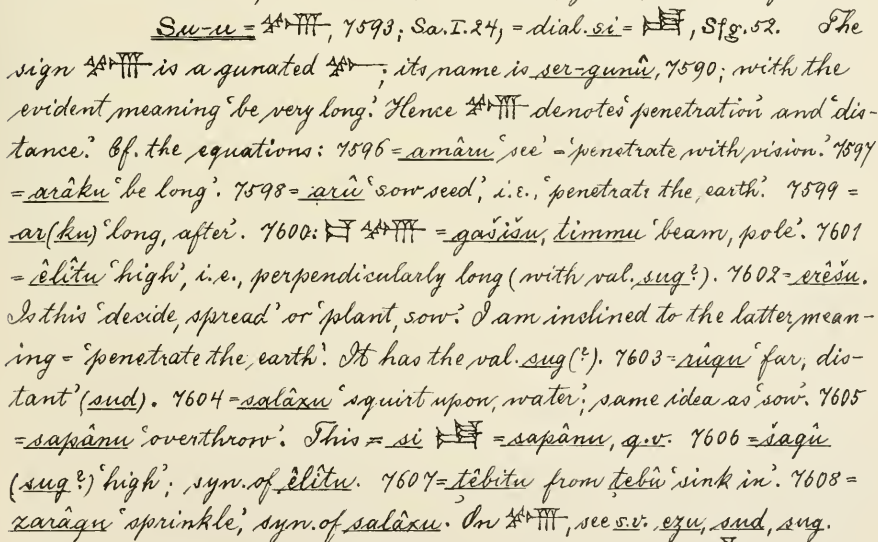 Su-u = 𒋤, 7593; Sa.I.24, = dial. si = , Sfg. 52. The
sign 𒋤 is a gunated ; its name is ser-gunû, 7590; with the
evident meaning 'be very long.' Hence 𒋤 denotes 'penetration' and 'dis-
tance.' Cf. the equations: 7596 = amâru 'see' = 'penetrate with vision.' 7597
= arâku 'be long'. 7598 = arû 'sow seed', i.e., 'penetrate the earth'. 7599 =
ar(ku) 'long, after'. 7600: 𒋤 = gašišu, timmu 'beam, pole'. 7601
= êlîtu 'high', i.e., perpendicularly long (with val. sug?). 7602 = erêšu.
Is this 'decide, spread' or 'plant, sow.' I am inclined to the latter mean-
ing = 'penetrate the earth'. It has the val. sug(?). 7603 = rûqu 'far, dis-
tant' (sud). 7604 = salâxu 'squirt upon, water'; same idea as 'sow'. 7605
= sapânu 'overthrow'. This = si = sapânu, q.v. 7606 = šaqû
(sug?) 'high'; syn. of êlîtu. 7607 = têbitu from ṭebû 'sink in'. 7608 =
zarâqu 'sprinkle', syn. of salâxu. On 𒋤, see s.v. ezu, sud, sug.